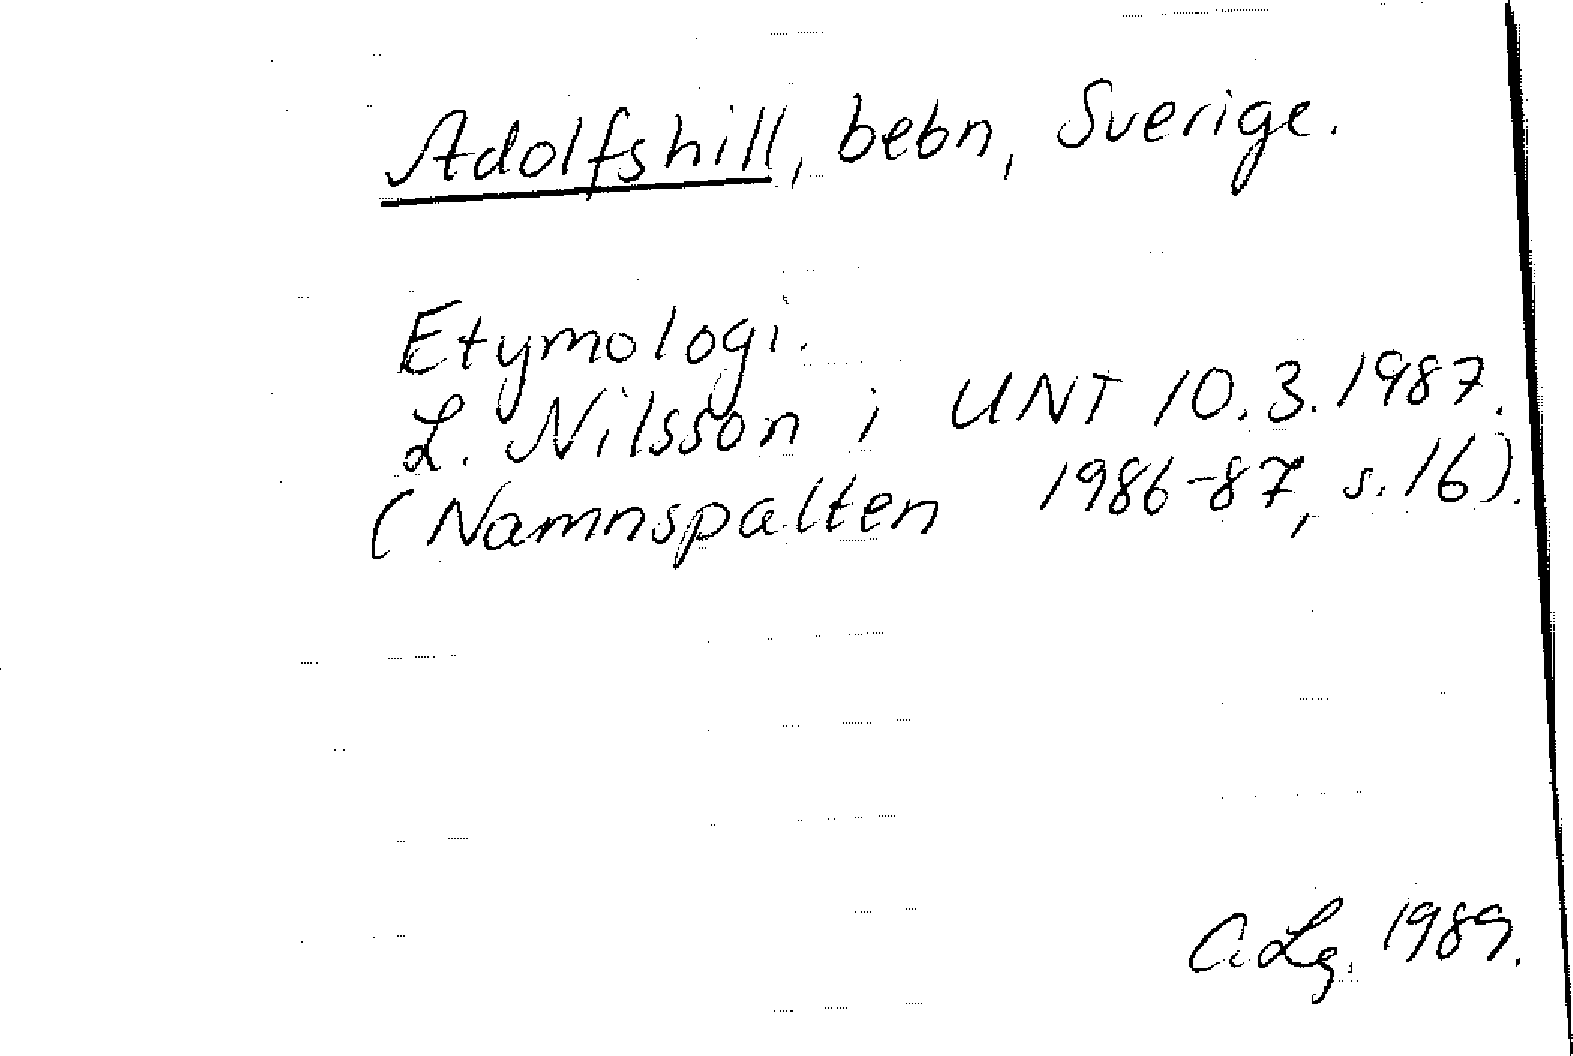 Adolfshill, bebn, Sverige.
Etymologi.
L. Nilsson i UNT 10.3.1987.
(Namnspalten 1986-87, s. 16).
C. Lg. 1989.